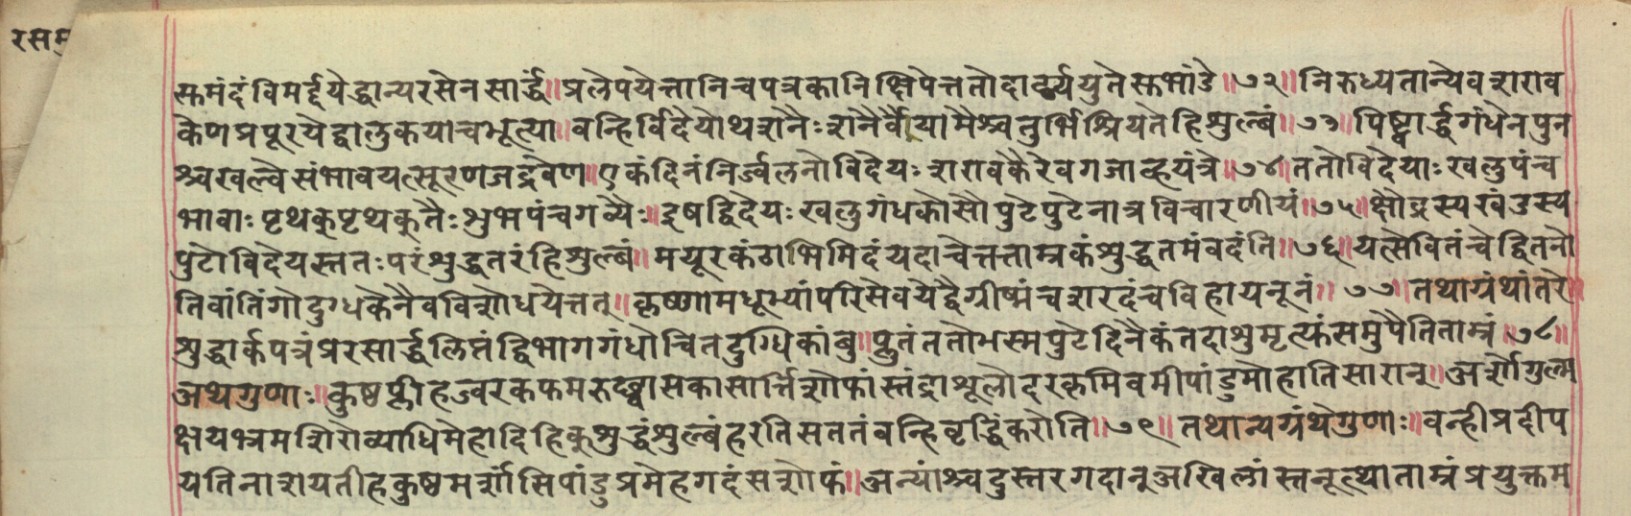 रसम
स्कमंदंविमर्द्दयेद्धान्यरसेनसार्द्धं॥प्रलेपयेत्तानिचपत्रकानिक्षिपेत्ततोदार्व्ययुतेस्कभांडे॥७२॥निरुध्यतान्येवशराव
केणप्रपूरयेद्वालुकयाचभूत्या॥वन्हिर्विदेयोथशनैःशनैर्वैयामैश्चतुर्भिश्रियतेहिशुल्बं॥७३॥पिष्ट्वार्द्धगंधेनपुन
श्चखल्वेसंभावयत्सूरणजद्रवेण॥एकंदिनंनिर्ज्वलनोविदेयःशरावकैरेवगजाव्हयंत्रे॥७४॥ततोविदेयाःखलुपंच
भावाःपृथक्पृथक्तैःशुभपंचगव्यैः॥इषद्विदेयःखलुगंधकोसौपुटेपुटेनात्रविचारणीयं॥७५॥क्षौद्रस्यखंउस्य
पुटोविदेयस्ततःपरंशुद्धतरंहिशुल्बं॥मयूरकंठाभिमिदंयदाचेत्तत्ताम्रकंशुद्धतमंवदंति॥७६॥यत्सेवितंचेद्वितनो
तिवांतिंगोदुग्धकेनैवविशोधयेत्तत्॥कृष्णामधूभ्यांपरिसेवयेद्वैग्रीष्मंचशरदंचविहायनूनं॥७७॥तथाग्रंथांतरे॥
शुद्धार्कपत्रंप्ररसार्द्धलिप्तंद्विभागगंधोचितदुग्धिकांबु॥प्लुतंततोभस्मपुटेदिनैकंतदाशुमृत्कंसमुपैतिताम्रं॥७८॥
अथगुणाः॥कुष्ठप्लीहज्वरकफमरुछ्वासकासार्त्तिशोफांस्तंद्राशूलोदरकृमिवमीपांडुमोहातिसारान्॥अर्शोगुल्म
क्षयभ्रमशिरोव्याधिमेहादिहिक्कुशुद्धंशुल्बंहरतिसततंवन्हिवृद्धिंकरोति॥७९॥तथान्यग्रंथेगुणाः॥वन्हीप्रदीप
यतिनाशयतीहकुष्ठमर्शांसिपांडुप्रमेहगदंसशोफं॥अन्यांश्चदुस्तरगदान्अखिलांस्तनूत्थाताम्रंप्रयुक्तम